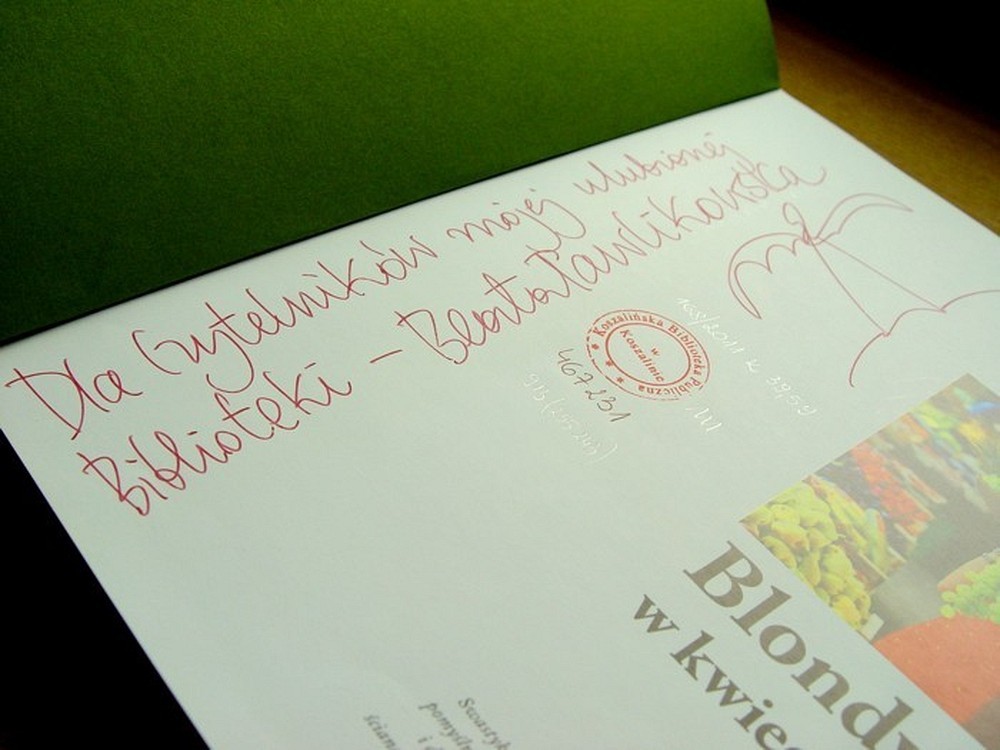 Dla Czytelników mojej ulubionej
Biblioteki - Beata Pawlikowska
Koszalińska Biblioteka Publiczna
w
Koszalinie
467231
Blondy
w kwie
Swastyk
pomyśln
i d
ścian